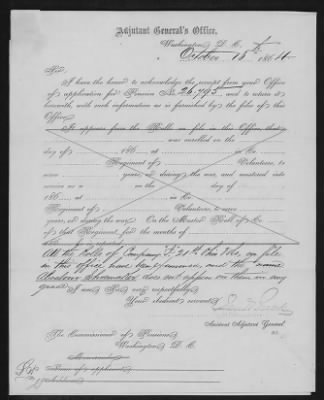 Adjutant General's Office,
Washington, D. C.
October 15th, 1864
Sir,
I have the honor to acknowledge the receipt from your Office
of application for Pension No. 26,793, and to return it
herewith, with such information as is furnished by the files of this
Office.
It appears from the Rolls on file in this Office, that
was enrolled on the
day of 186 at in Co.
Regiment of Volunteers, to
serve years, or during the war, and mustered into
service as a on the day of
186 at in Co.
Regiment of Volunteers, to serve
years, or during the war. On the Muster Roll of Co.
of that Regiment, for the months of
186
All the Rolls of Company on file
in this office have been and the name
does not appear on them in any
I am, Sir, very respectfully,
Your obedient servant,
Assistant Adjutant General.
The Commissioner of Pensions,
Washington, D. C.
Memorandum
Name of applicant,